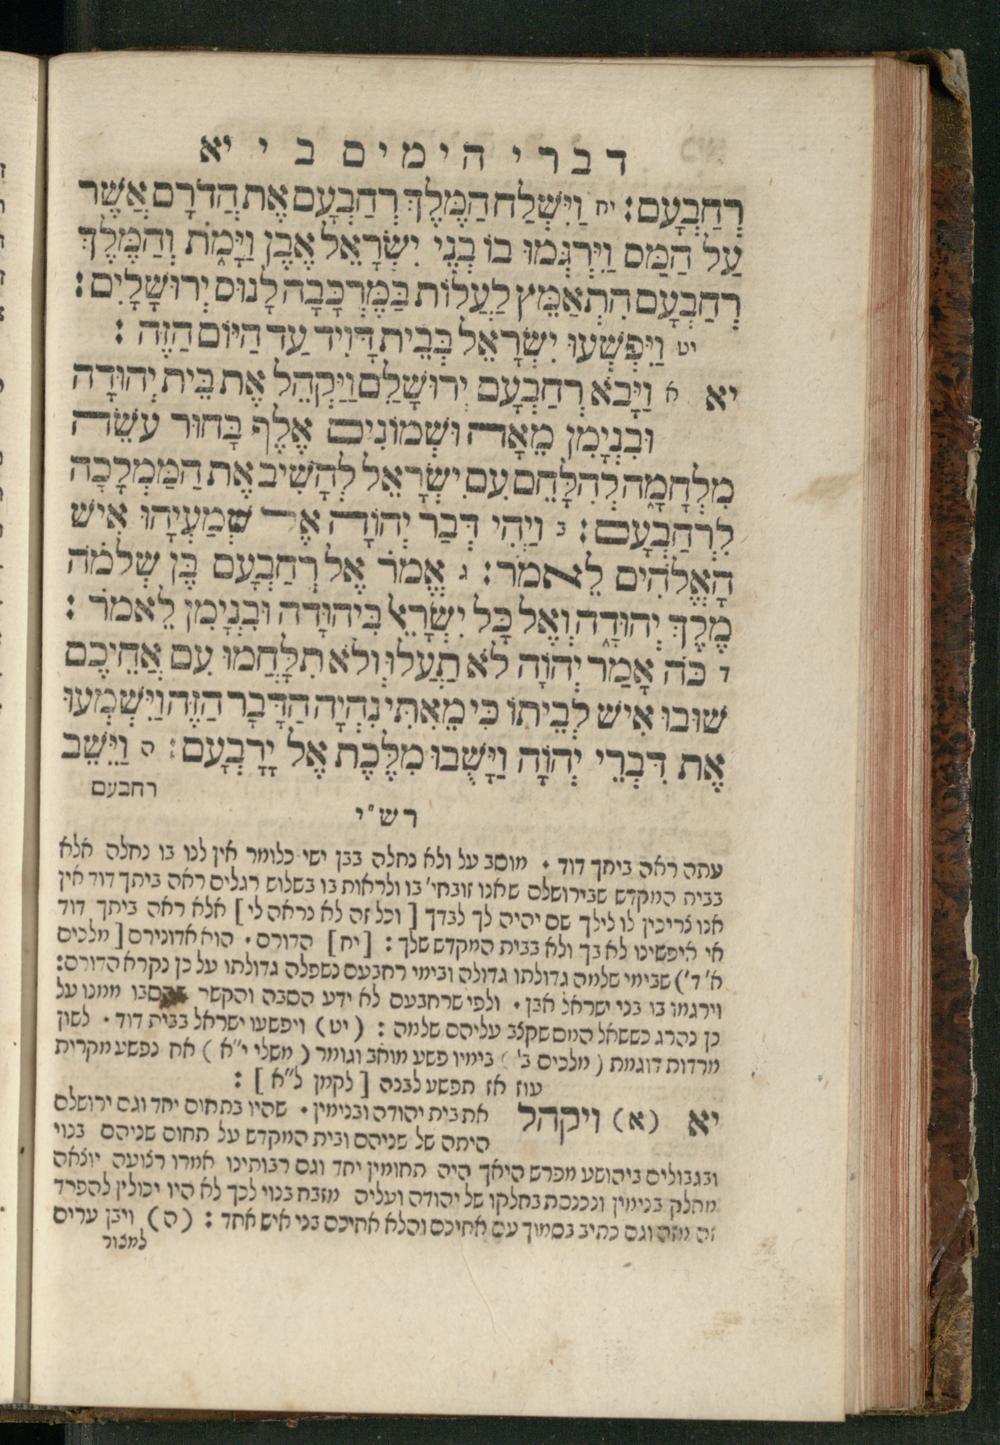 דברי הימים ב י יא
רְחַבְעָם: יח וַיִּשְׁלַח הַמֶּלֶךְ רְחַבְעָם אֶת הֲדֹרָם אֲשֶׁר
עַל הַמַּס וַיִּרְגְּמוּ בוֹ בְנֵי יִשְׂרָאֵל אֶבֶן וַיָּמֹת וְהַמֶּלֶךְ
רְחַבְעָם הִתְאַמֵּץ לַעֲלוֹת בַּמֶּרְכָּבָה לָנוּס יְרוּשָׁלָיִם:
יט וַיִּפְשְׁעוּ יִשְׂרָאֵל בְּבֵית דָּוִיד עַד הַיּוֹם הַזֶּה:
יא א וַיָּבֹא רְחַבְעָם יְרוּשָׁלִַם וַיַּקְהֵל אֶת בֵּית יְהוּדָה
וּבִנְיָמִן מֵאָה וּשְׁמוֹנִים אֶלֶף בָּחוּר עֹשֵׂה
מִלְחָמָה לְהִלָּחֵם עִם יִשְׂרָאֵל לְהָשִׁיב אֶת הַמַּמְלָכָה
לִרְחַבְעָם: ב וַיְהִי דְּבַר יְהוָֹה אֶל שְׁמַעְיָהוּ אִישׁ
הָאֱלֹהִים לֵאמֹר: ג אֱמֹר אֶל רְחַבְעָם בֶּן שְׁלֹמֹה
מֶלֶךְ יְהוּדָה וְאֶל כָּל יִשְׂרָאֵל בִּיהוּדָה וּבִנְיָמִן לֵאמֹר:
ד כֹּה אָמַר יְהוָֹה לֹא תַעֲלוּ וְלֹא תִלָּחֲמוּ עִם אֲחֵיכֶם
שׁוּבוּ אִישׁ לְבֵיתוֹ כִּי מֵאִתִּי נִהְיָה הַדָּבָר הַזֶּה וַיִּשְׁמְעוּ
אֶת דִּבְרֵי יְהוָֹה וַיָּשֻׁבוּ מִלֶּכֶת אֶל יָרָבְעָם: ה וַיֵּשֶׁב
רחבעם
רש"י
עתה ראה ביתך דוד. מוסב על ולא נחלה בבן ישי כלומר אין לנו בו נחלה אלא
בבית המקדש שבירושלם שאנו זובחי' בו ולראות בו בשלוש רגלים ראה ביתך דוד אין
אנו צריכין לו לילך שם יהיה לך לבדך [וכל זה לא נראה לי] אלא ראה ביתך דוד
אי איפשינו לא בך ולא בבית המקדש שלך: [יח] הדורם. הוא אדונירם [מלכים
א' ד') שבימי שלמה גדולתו גדולה ובימי רחבעם נשפלה גדולתו על כן נקרא הדורם:
וירגמו בו בני ישראל אבן. ולפי שרחבעם לא ידע הסבה והקשר שהסבו ממנו על
כן נהרג כששאל המס שקצב עליהם שלמה: (יט) ויפשעו ישראל בבית דוד. לשון
מרדות דוגמת (מלכים ב') בימיו פשע מואב וגומר (משלי י"א) אח נפשע מקרית
עוז אז תפשע לבנה [לקמן ל"א]:
יא (א) ויקהל את בית יהודה ובנימין. שהיו בתחום יחד וגם ירושלם
היתה של שניהם ובית המקדש על תחום שניהם בנוי
ובגבולים ביהושע מפרש היאך היה תחומין יחד וגם רבותינו אמרו רצועה יוצאה
מחלק בנימין ונכנסת בחלקו של יהודה ועליה מזבח בנוי לכך לא היו יכולין להפרד
זה מזה וגם כתיב בסמוך עם אחיכם והלא אחיכם בני איש אחד: (ה) ויבן ערים
למצור